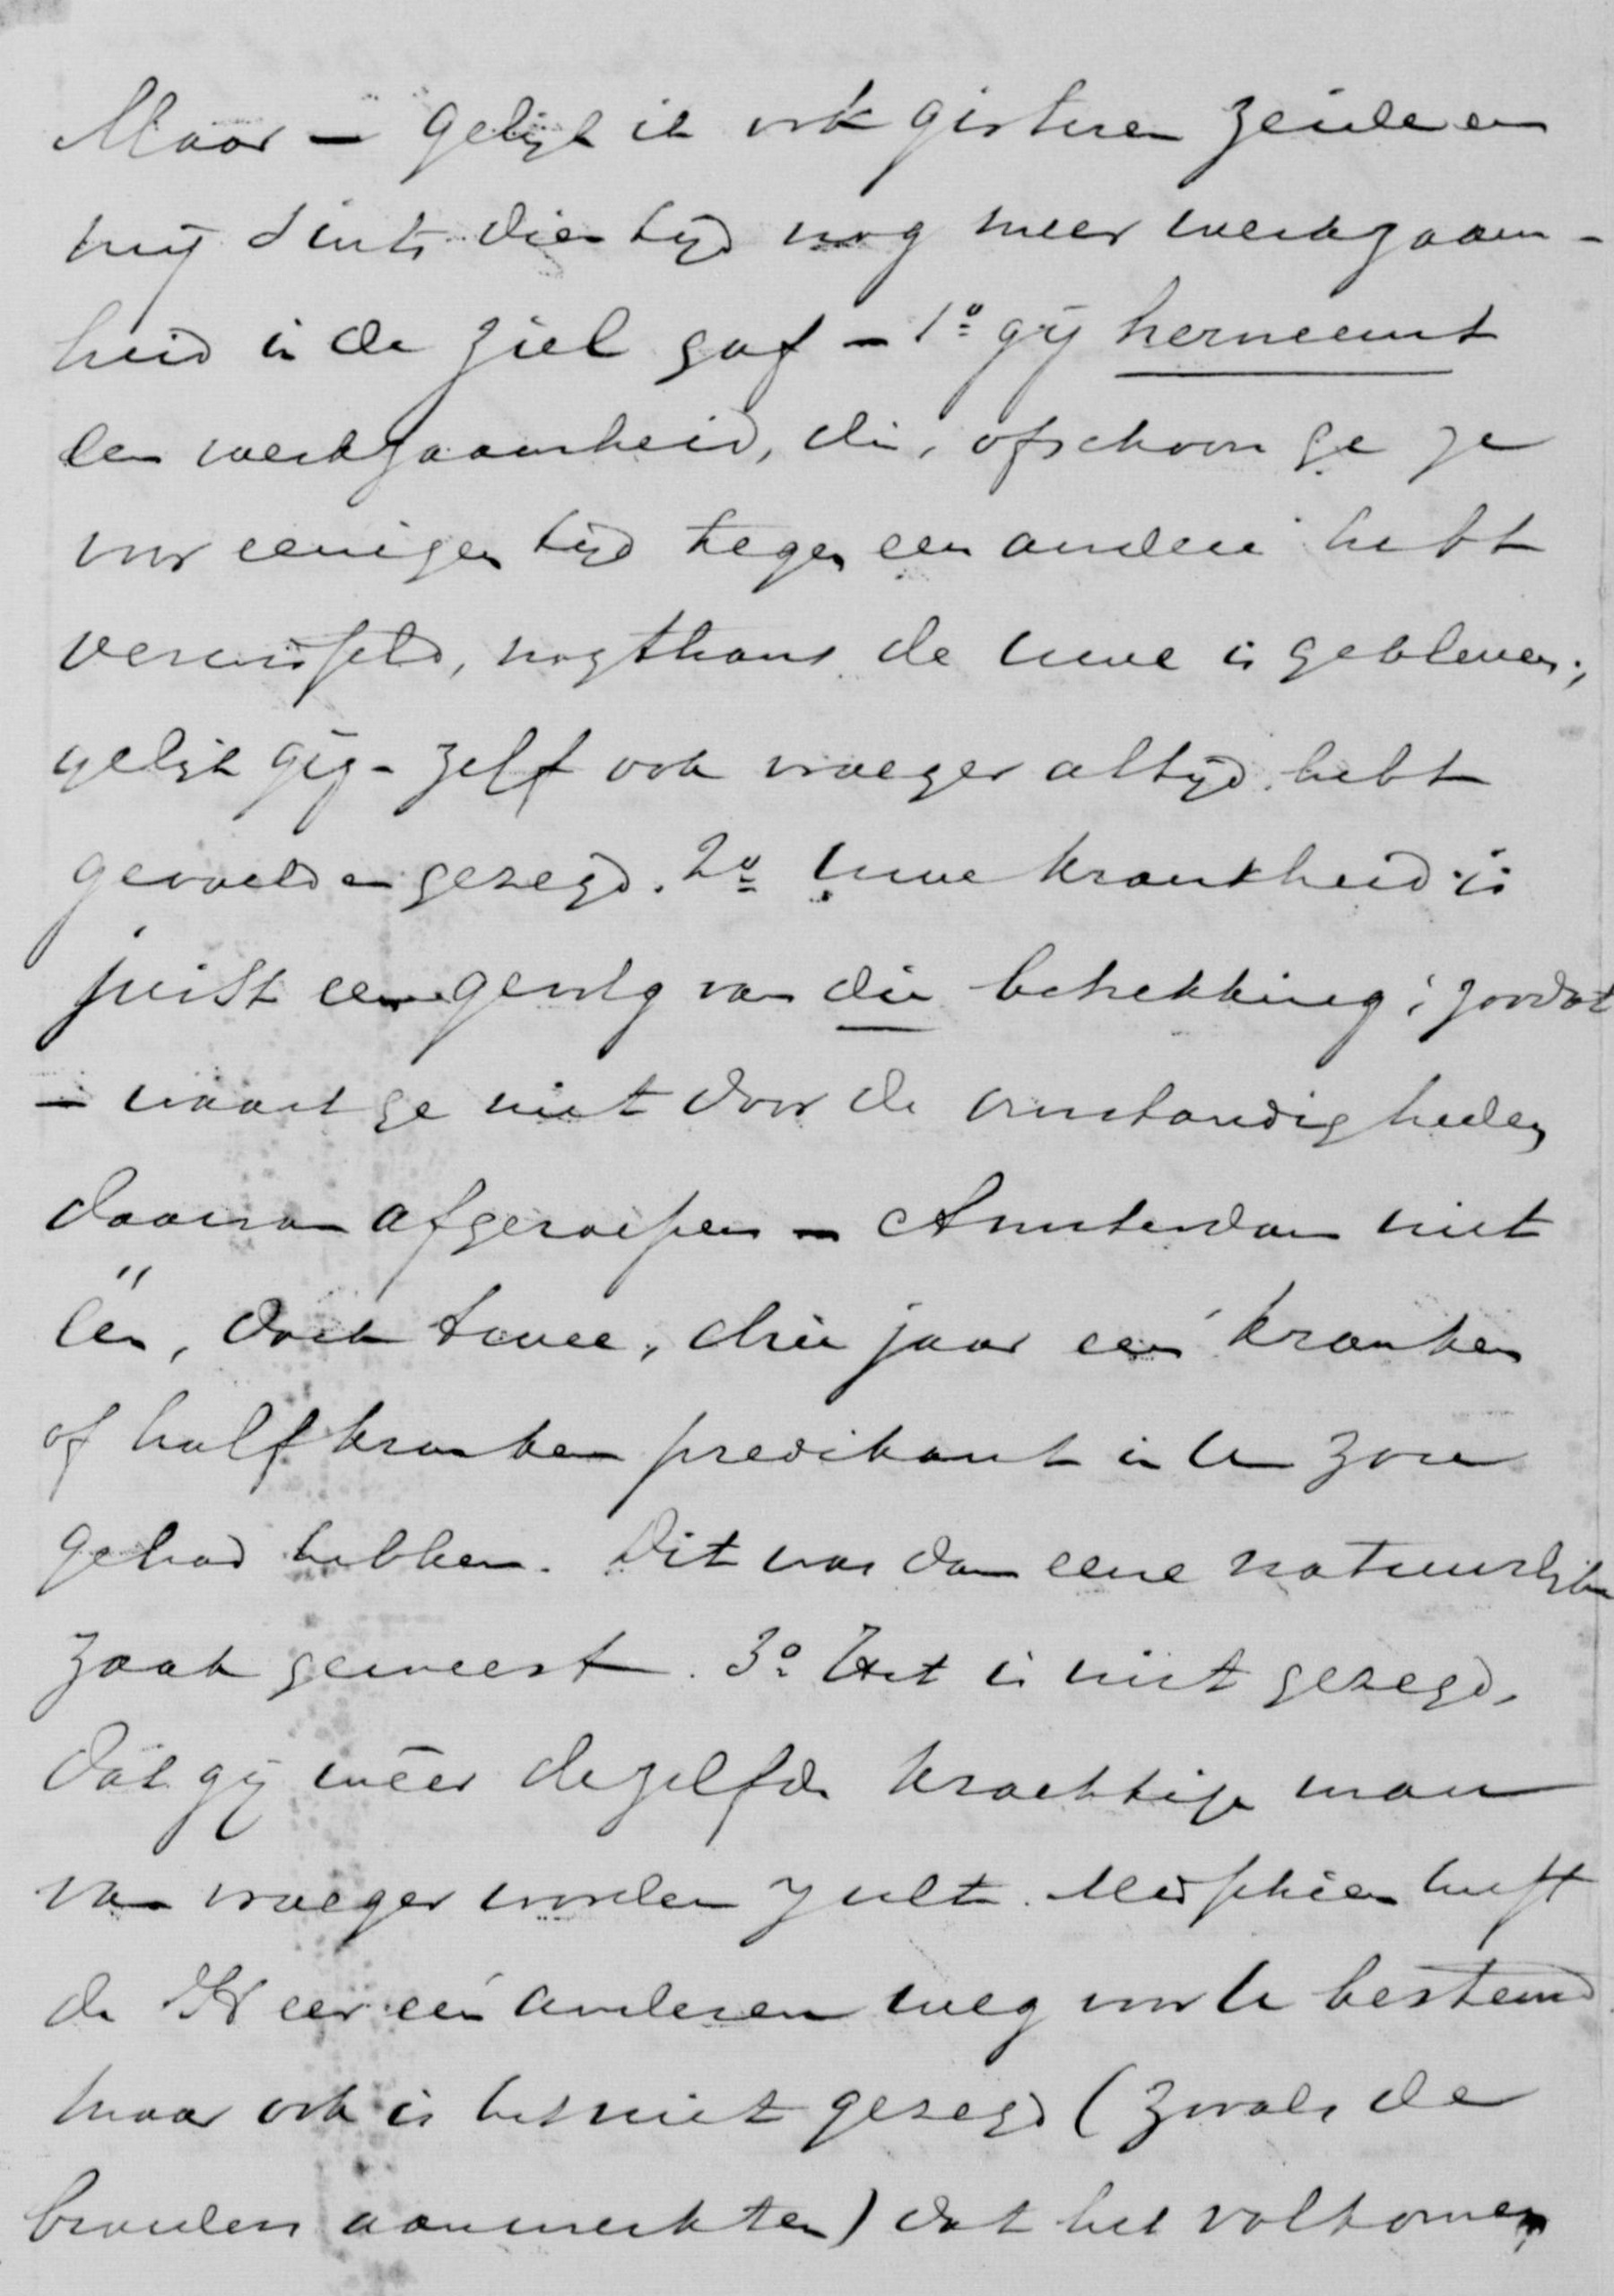 Maar – gelijk ik ook gisteren zeide en
mij sints dien tijd nog meer werkzaam-
heid in de ziel gaf – 1º gij herneemt
een werkzaamheid, die, ofschoon ge ze
voor eenigen tijd tegen een andere hebt
verwisseld, nogthans de uwe is gebleven;
gelijk gij-zelf ook vroeger altijd hebt
gevoeld en gezegd. 2º Uwe krankheid is
juist een gevolg van die betrekking; zoodat
– waart ge niet door de omstandigheden
daarvan afgeroepen – Amsterdam niet
één, doch twee, drie jaar een kranken
of half kranken predikant in U zou
gehad hebben. Dit was dan eene natuurlijke
zaak geweest. 3º Het is niet gezegd,
dat gij wéér dezelfde krachtige man
van vroeger worden zult. Misschien heeft
de Heer een anderen weg voor U bestemd
maar ook is het niet gezegd (zooals de
broeders aanmerkten) dat het volkomen